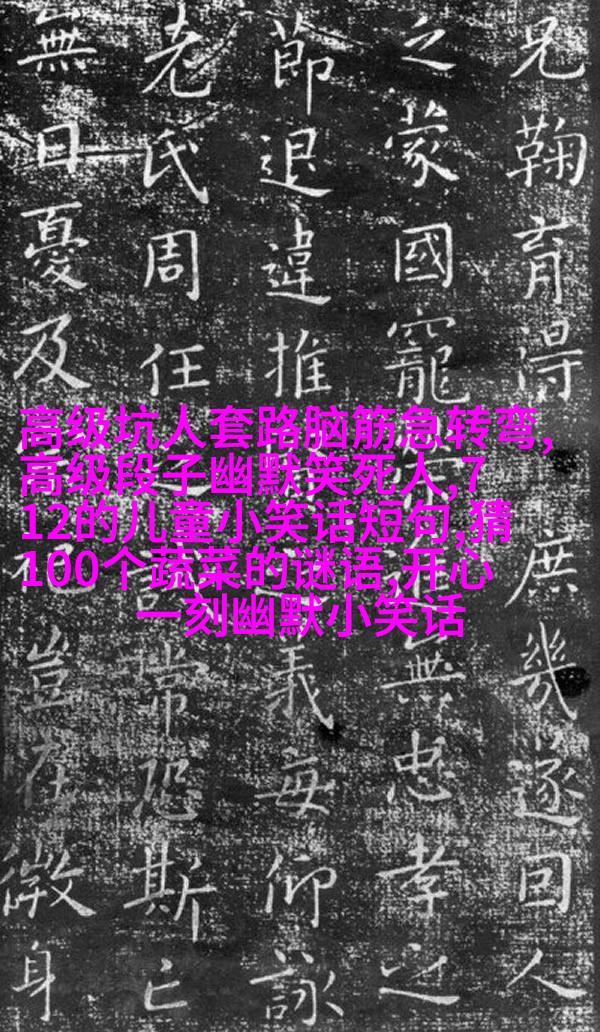 兄鞠育得庶幾遂回人
之蒙國寵無忠孝之
節退違推義每仰詠
老氏周任常恐斯亡
無日憂及豈在微身
高级坑人套路脑筋急转弯,
高级段子幽默笑死人,7
12的儿童小笑话短句,猜
100个蔬菜的谜语,开心
一刻幽默小笑话